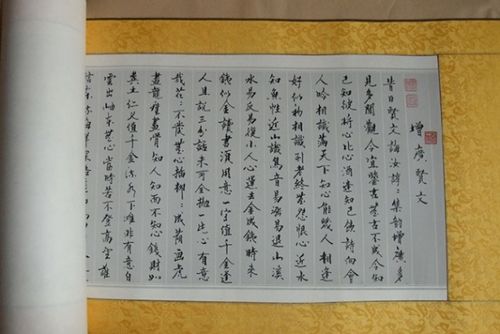 增廣賢文
昔日賢文誨汝諄：集韵增廣多
見多聞觀今宜鑒古無古不成今知
己知彼將心比心酒逢知己飲詩向會
人吟相識滿天下知心能幾人相逢
好似初相識到老終無怨恨心近水
知魚性近山識鳥音易漲易退山溪
水易反易復小人心運去金成鐵時來
鐵似金讀書須用意一字值千金逢
人且說三分話未可全抛一片心有意
栽花：不發無心插柳：成蔭画虎
畫龍難畫骨知人知而不知心錢財如
糞土仁义值千金流水下灘非有意白
雲出岫本無心當時若不登高望誰
信東流海洋深